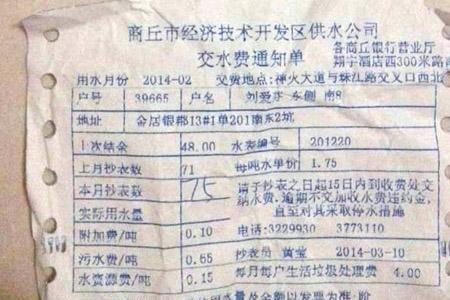 商丘市经济技术开发区供水公司
交水费通知单
各商丘银行营业厅
翔宇酒店西300米路南
用水月份 2014-02 交费地点:神火大道与珠江路交叉口西北
户号 39665 户名 刘爱 东侧 南8
地址 金居银郡13#1单201南东2坑
上次结余 48.00 水表编号 201220
上月抄表数 71 每吨水单价 1.75
本月抄表数 75 请于抄表之日起15日内到收费处交
纳水费,逾期不交加收水费违约金,
直至对其采取停水措施
实际用水量
附加费/吨 0.10 电话:3229930 3773110
污水费/吨 0.65 抄表员 黄莹 2014-03-10
水资源费/吨 0.15 每月每户生活垃圾处理费 4.00
用水量及金额以发票为准